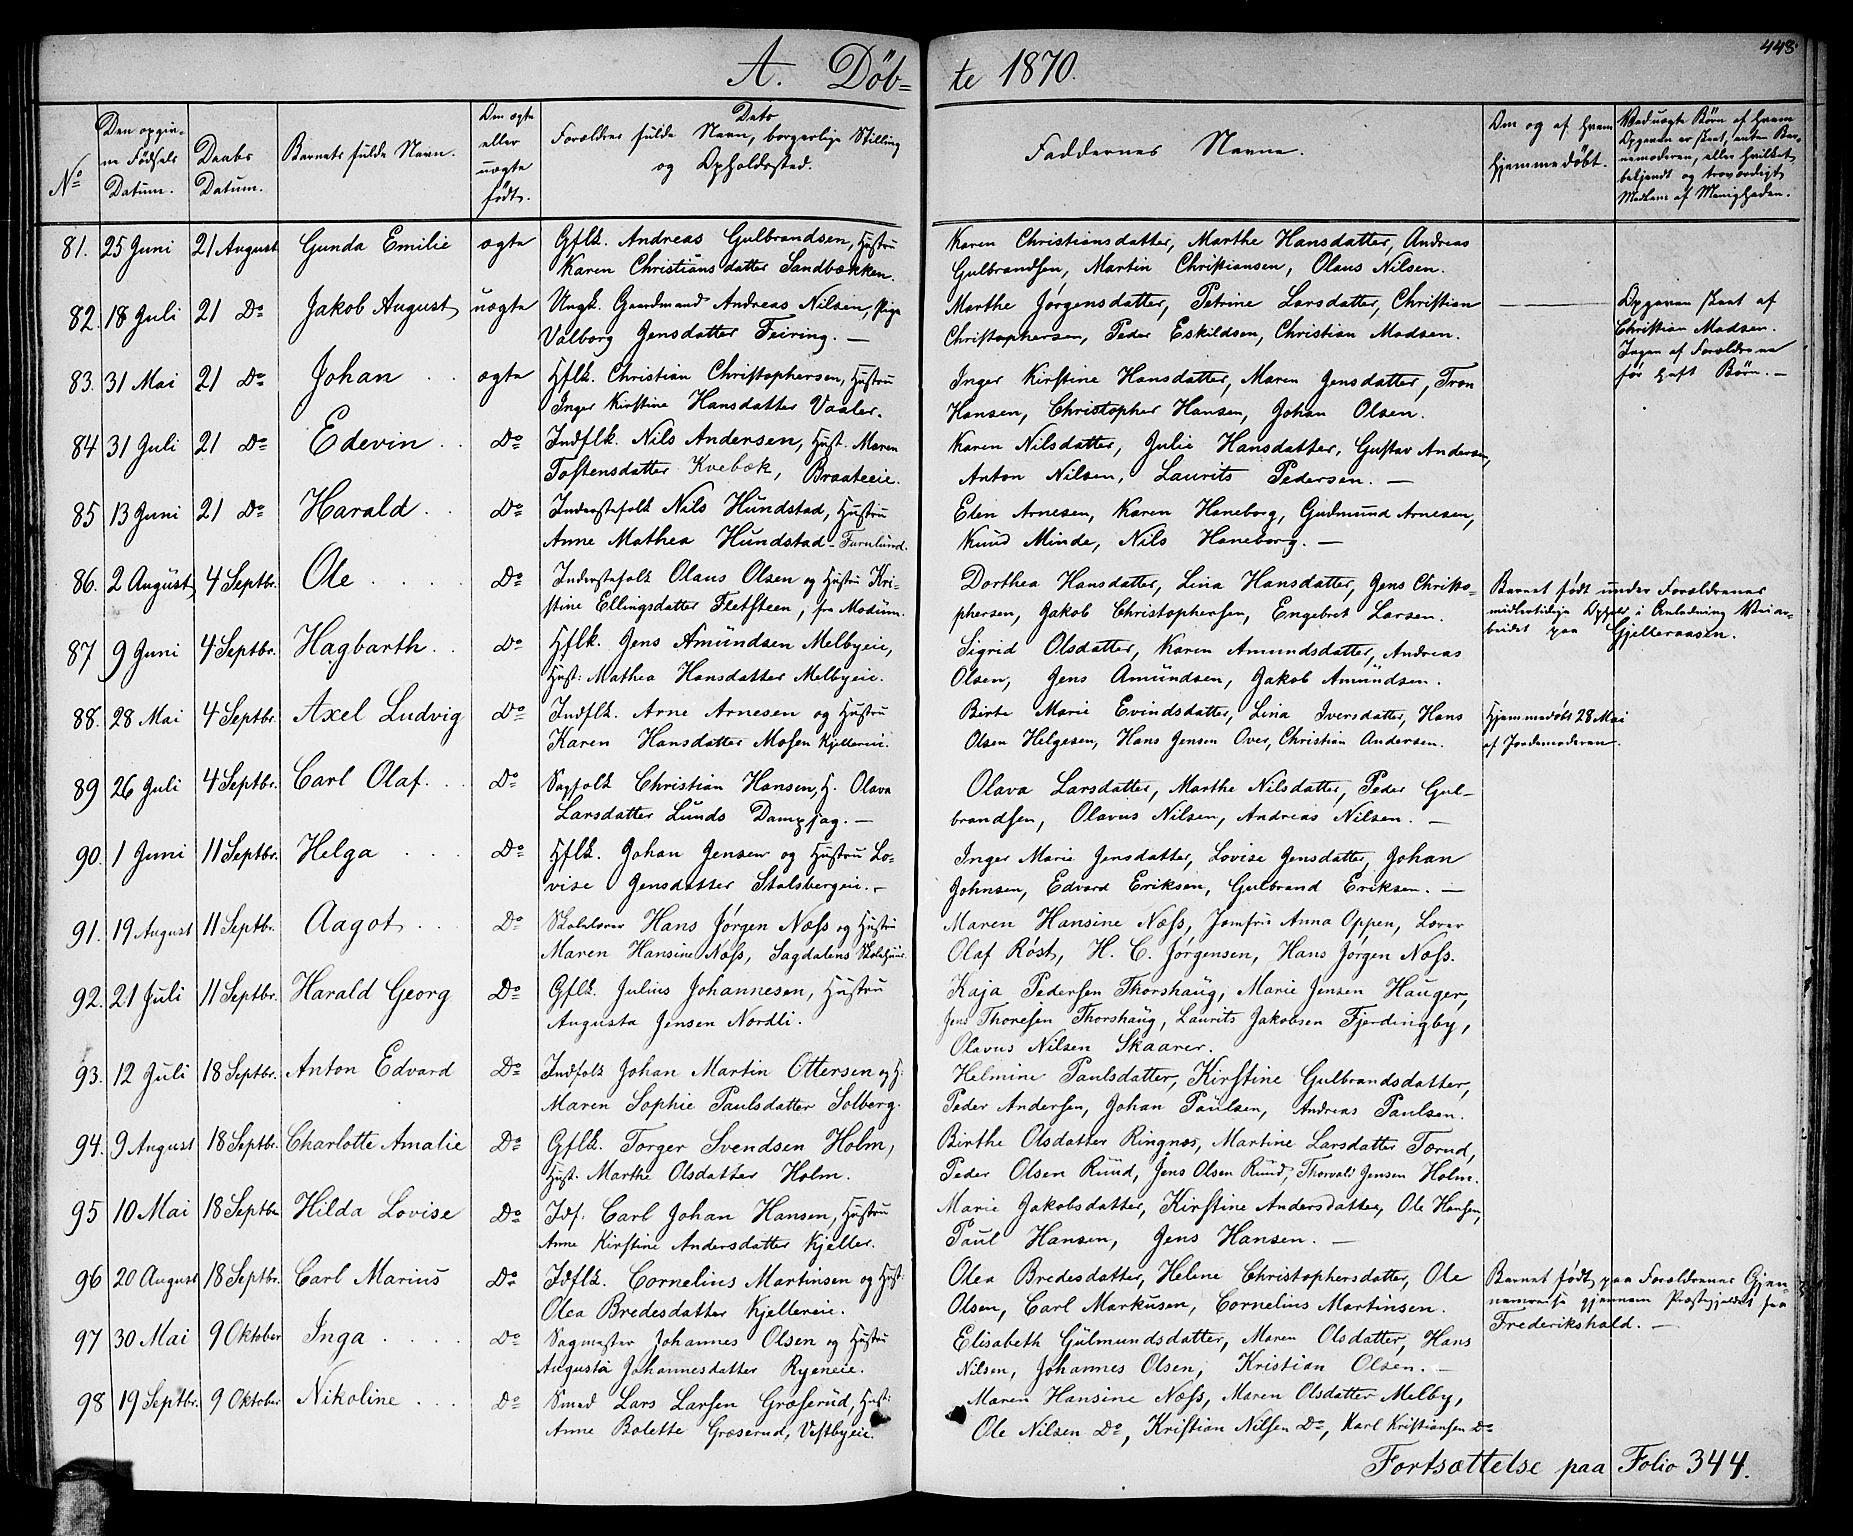 448
A. Døb= te 1870.
No
Den opgiv=
ne Fødsels
Datum.
Daabs
Datum.
Barnets fulde Navn.
Om ægte
eller
uægte
født.
Dets
Forældres fulde Navn, borgerlige Stilling
og Opholdssted.
Faddernes Navne.
Om og af hvem
hjemmedøbt.
Ved uægte Børn af hvem
Opgaven er skeet, enten Bar-
nemoderen, eller hvilket
betjendt og troværdigt
Medlem af Menigheden.
81. 25 Juni 21 August Gunda Emilie ægte Gflk. Andreas Gulbrandsen, Hustru Karen Christiansdatter, Marthe Hansdatter, Andreas
Karen Christiansdatter Sandbækken. Gulbrandsen, Martin Christiansen, Olaus Nilsen.
82. 18 Juli 21 Do Jakob August uægte Ungk. Gaardmand Andreas Nilsen, Pige Marthe Jørgensdatter, Petrine Larsdatter, Christian — Opgaven skeet af
Valborg Jensdatter Feiring. — Christophersen, Peder Eskildsen, Christian Madsen. Christian Madsen.
Ingen af Forældrene
før havt Børn. —
83. 31 Mai 21 Do Johan . . ægte Hflk. Christian Christophersen, Hustru Inger Kirstine Hansdatter, Maren Jensdatter, Tron
Inger Kirstine Hansdatter Vaaler. Hansen, Christopher Hansen, Johan Olsen.
84 31 Juli 21 Do Edevin . . Do Indflk. Nils Andersen, Hust. Maren Karen Nilsdatter, Julie Hansdatter, Gustav Andersen,
Tostensdatter Kvebæk, Braateeie. Anton Nilsen, Laurits Pedersen. —
85 13 Juni 21 Do Harald . Do Inderstefolk Nils Hundstad, Hustru Elen Arnesen, Karen Haneborg, Gudmund Arnesen,
Anne Mathea Hundstad - Furulund. Knud Minde, Nils Haneborg. —
86. 2 August 4 Septbr. Ole . . . . Do Inderstefolk Olaus Olsen og Hustru Kri- Dorthea Hansdatter, Lina Hansdatter, Jens Christo- Barnet født under Forældrenes
stine Ellingsdatter Fletsteen, fra Modum. phersen, Jakob Christophersen, Engebret Larsen. midlertidige Ophold i Anledning Veiar-
beidet paa Gjelleraasen.
87 9 Juni 4 Septbr. Hagbarth . Do Hflk. Jens Amundsen Melbyeie, Sigrid Olsdatter, Karen Amundsdatter, Andreas
Hust: Mathea Hansdatter Melbyeie. Olsen, Jens Amundsen, Jakob Amundsen.
88. 28 Mai 4 Septbr. Axel Ludvig Do Indflk. Arne Arnesen og Hustru Birte Marie Evindsdatter, Lina Iversdatter, Hans Hjemmedøbt 28 Mai
Karen Hansdatter Mosen Kjellereie. Olsen Helgesen, Hans Jensen Over, Christian Andersen. af Jordemoderen.
89 26 Juli 4 Septbr. Carl Olaf . . Do Sagfolk Christian Hansen, H. Olava Olava Larsdatter, Marthe Nilsdatter, Peder Gul-
Larsdatter Lunds Dampsag. — brandsen, Olavus Nilsen, Andreas Nilsen. —
90. 1 Juni 11 Septbr. Helga . . . Do Hflk. Johan Jensen og Hustru Lo- Inger Marie Jensdatter, Lovise Jensdatter, Johan
vise Jensdatter Stalsbergeie. - Johnsen, Edvard Eriksen, Gulbrand Eriksen. —
91. 19 August 11 Septbr. Aagot . . Do Skolelærer Hans Jørgen Næss og Hustru Maren Hansine Næss, Jomfru Anna Oppen, Lærer
Maren Hansine Næss, Sagdalens Skolehuus. Olaf Røst, H. C. Jørgensen, Hans Jørgen Næss.
92. 21 Juli 11 Septbr. Harald Georg Do Gflk. Julius Johannesen, Hustru Kaja Pedersen Thorshaug, Marie Jensen Hauger,
Augusta Jensen Nordli. Jens Thoresen Thorshaug, Laurits Jakobsen Fjerdingby,
Olavus Nilsen Skaarer.
93. 12 Juli 18 Septbr. Anton Edvard Do Indfolk Johan Martin Ottersen og H: Helmine Paulsdatter, Kirstine Gulbrandsdatter,
Maren Sophie Paulsdatter Solberg. Peder Andersen, Johan Paulsen, Andreas Paulsen.
94. 9 August 18 Septbr. Charlotte Amalie Do Gflk. Torger Svendsen Holm, Birthe Olsdatter Ringnæs, Martine Larsdatter Tærud,
Hust. Marthe Olsdatter Holm. Peder Olsen Ruud, Jens Olsen Ruud, Thorvald Jensen Holm.
95 10 Mai 18 Septbr Hilda Lovise Do Idf. Carl Johan Hansen, Hustru Marie Jakobsdatter, Kirstine Andersdatter, Ole Hansen,
Anne Kirstine Andersdatter Kjeller. Paul Hansen, Jens Hansen. —
96 20 August 18 Septbr. Carl Marius Do Idflk. Cornelius Martinsen og Hust: Olea Bredesdatter, Helene Christophersdatter, Ole Barnet født paa Forældrenes Gjen-
Olea Bredesdatter Kjellereie. Olsen, Carl Markusen, Cornelius Martinsen. nemreise gjennem Præstegjeldet fra
Frederikshald. —
97 30 Mai 9 Oktober Inga . . . . Do Sagmester Johannes Olsen og Hustru Elisabeth Gulmundsdatter, Maren Olsdatter, Hans
Augusta Johannesdatter Ryeneie. Nilsen, Johannes Olsen, Kristian Olsen. —
98 19 Septbr. 9 Oktober Nikoline . . . Do Smed Lars Larsen Græserud, Hust: Maren Hansine Næss, Maren Olsdatter Melby,
Anne Bolette Græserud, Vestbyeie. Ole Nilsen Do, Kristian Nilsen Do, Karl Kristiansen Do
Fortsættelse paa Folio 344.